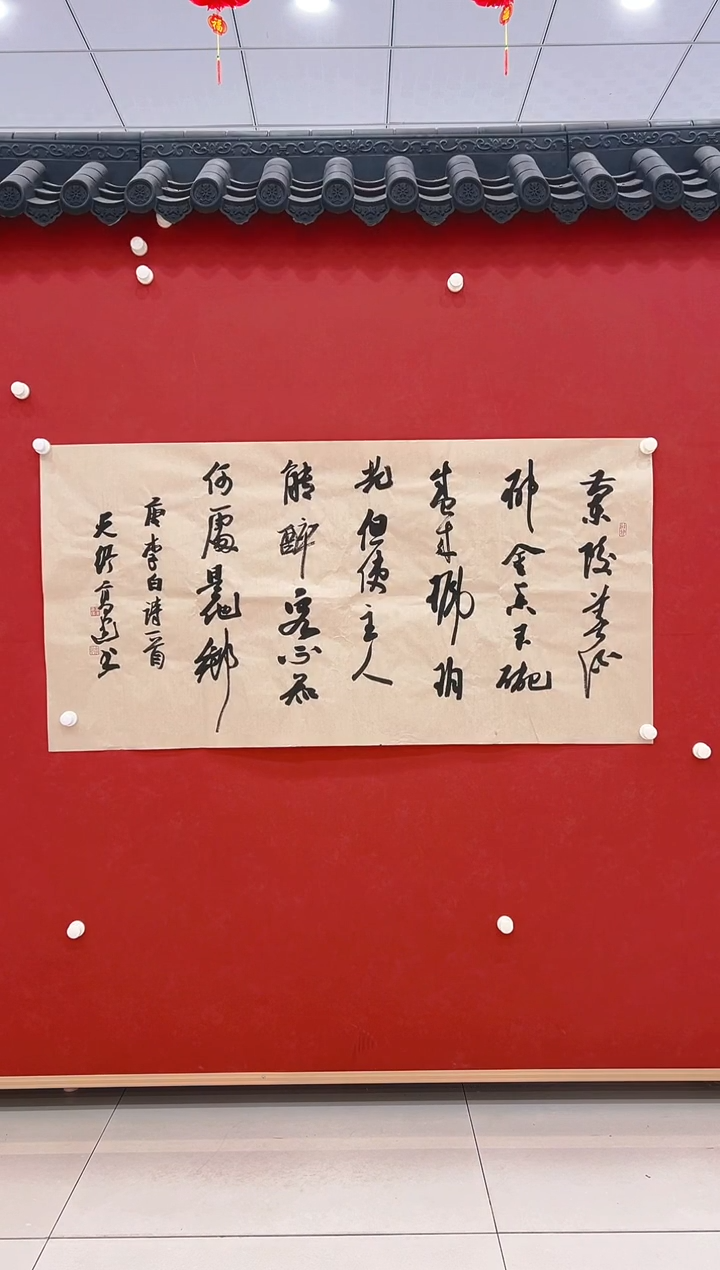 福
福
蘭陵美酒
郁金香玉碗
盛来琥珀
光但使主人
能醉客不知
何處是他鄉
唐李白詩一首
天高书